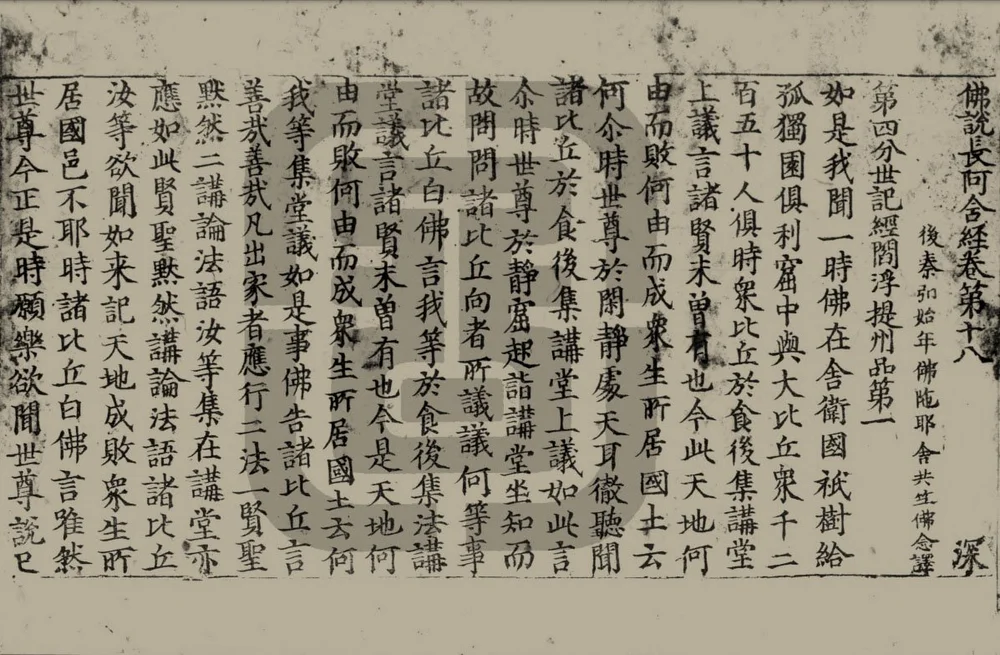 佛說長阿含経卷第十八 深
後秦弘始年佛陁耶舍共竺佛念譯
第四分世記經閻浮提州品第一
如是我聞一時佛在舍衛國祇樹給
孤獨園俱利窟中與大比丘衆千二
百五十人俱時衆比丘於食後集講堂
上議言諸賢未曽有也今此天地何
由而敗何由而成衆生所居國土云
何尒時世尊於閑靜處天耳徹聽聞
諸比丘於食後集講堂上議如此言
尒時世尊於靜窟起詣講堂坐知而
故問問諸比丘向者所議議何等事
諸比丘白佛言我等於食後集法講
堂議言諸賢未曽有也今是天地何
由而敗何由而成衆生所居國土云何
我等集堂議如是事佛告諸比丘言
善㢤善㢤凡出家者應行二法一賢聖
默然二講論法語汝等集在講堂亦
應如此賢聖默然講論法語諸比丘
汝等欲聞如来記天地成敗衆生所
居國邑不耶時諸比丘白佛言唯然
世尊今正是時願樂欲聞世尊說已